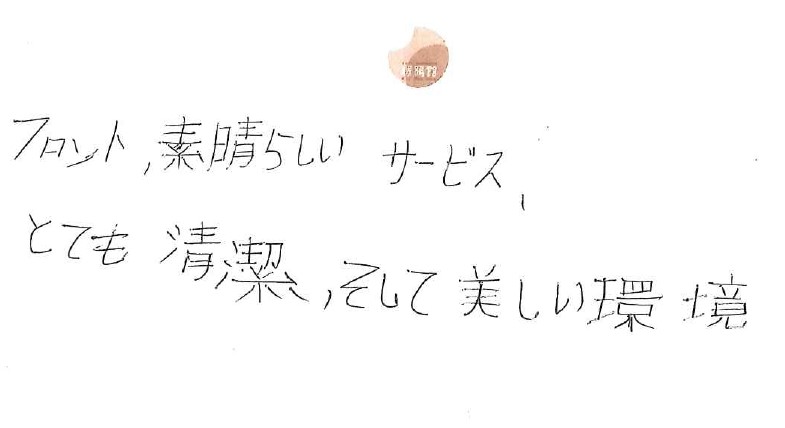 フロント,素晴らしい サービス,
とても 清潔,そして 美しい 環境